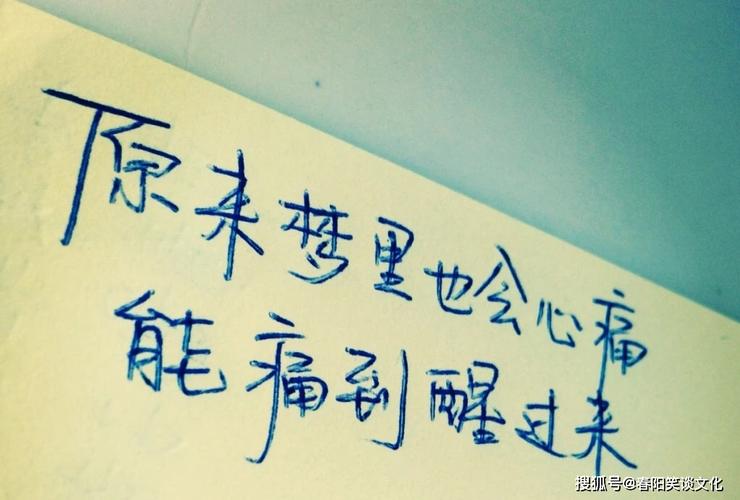 原来梦里也会心痛
能痛到醒过来
搜狐号@春阳笑谈文化